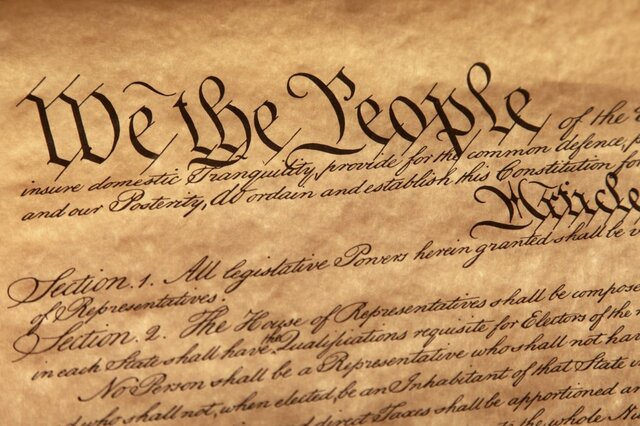 We the People of the
insure domestic Tranquility, provide for the common defence,
and our Posterity, do ordain and establish this Constitution for
Article
Section. 1. All legislative Powers herein granted shall be
of Representatives.
Section. 2. The House of Representatives shall be compose
in each State shall have the Qualifications requisite for Electors of the
No Person shall be a Representative who shall not ha
who shall not, when elected, be an Inhabitant of that State
direct Taxes shall be apportioned a
the whole Nu